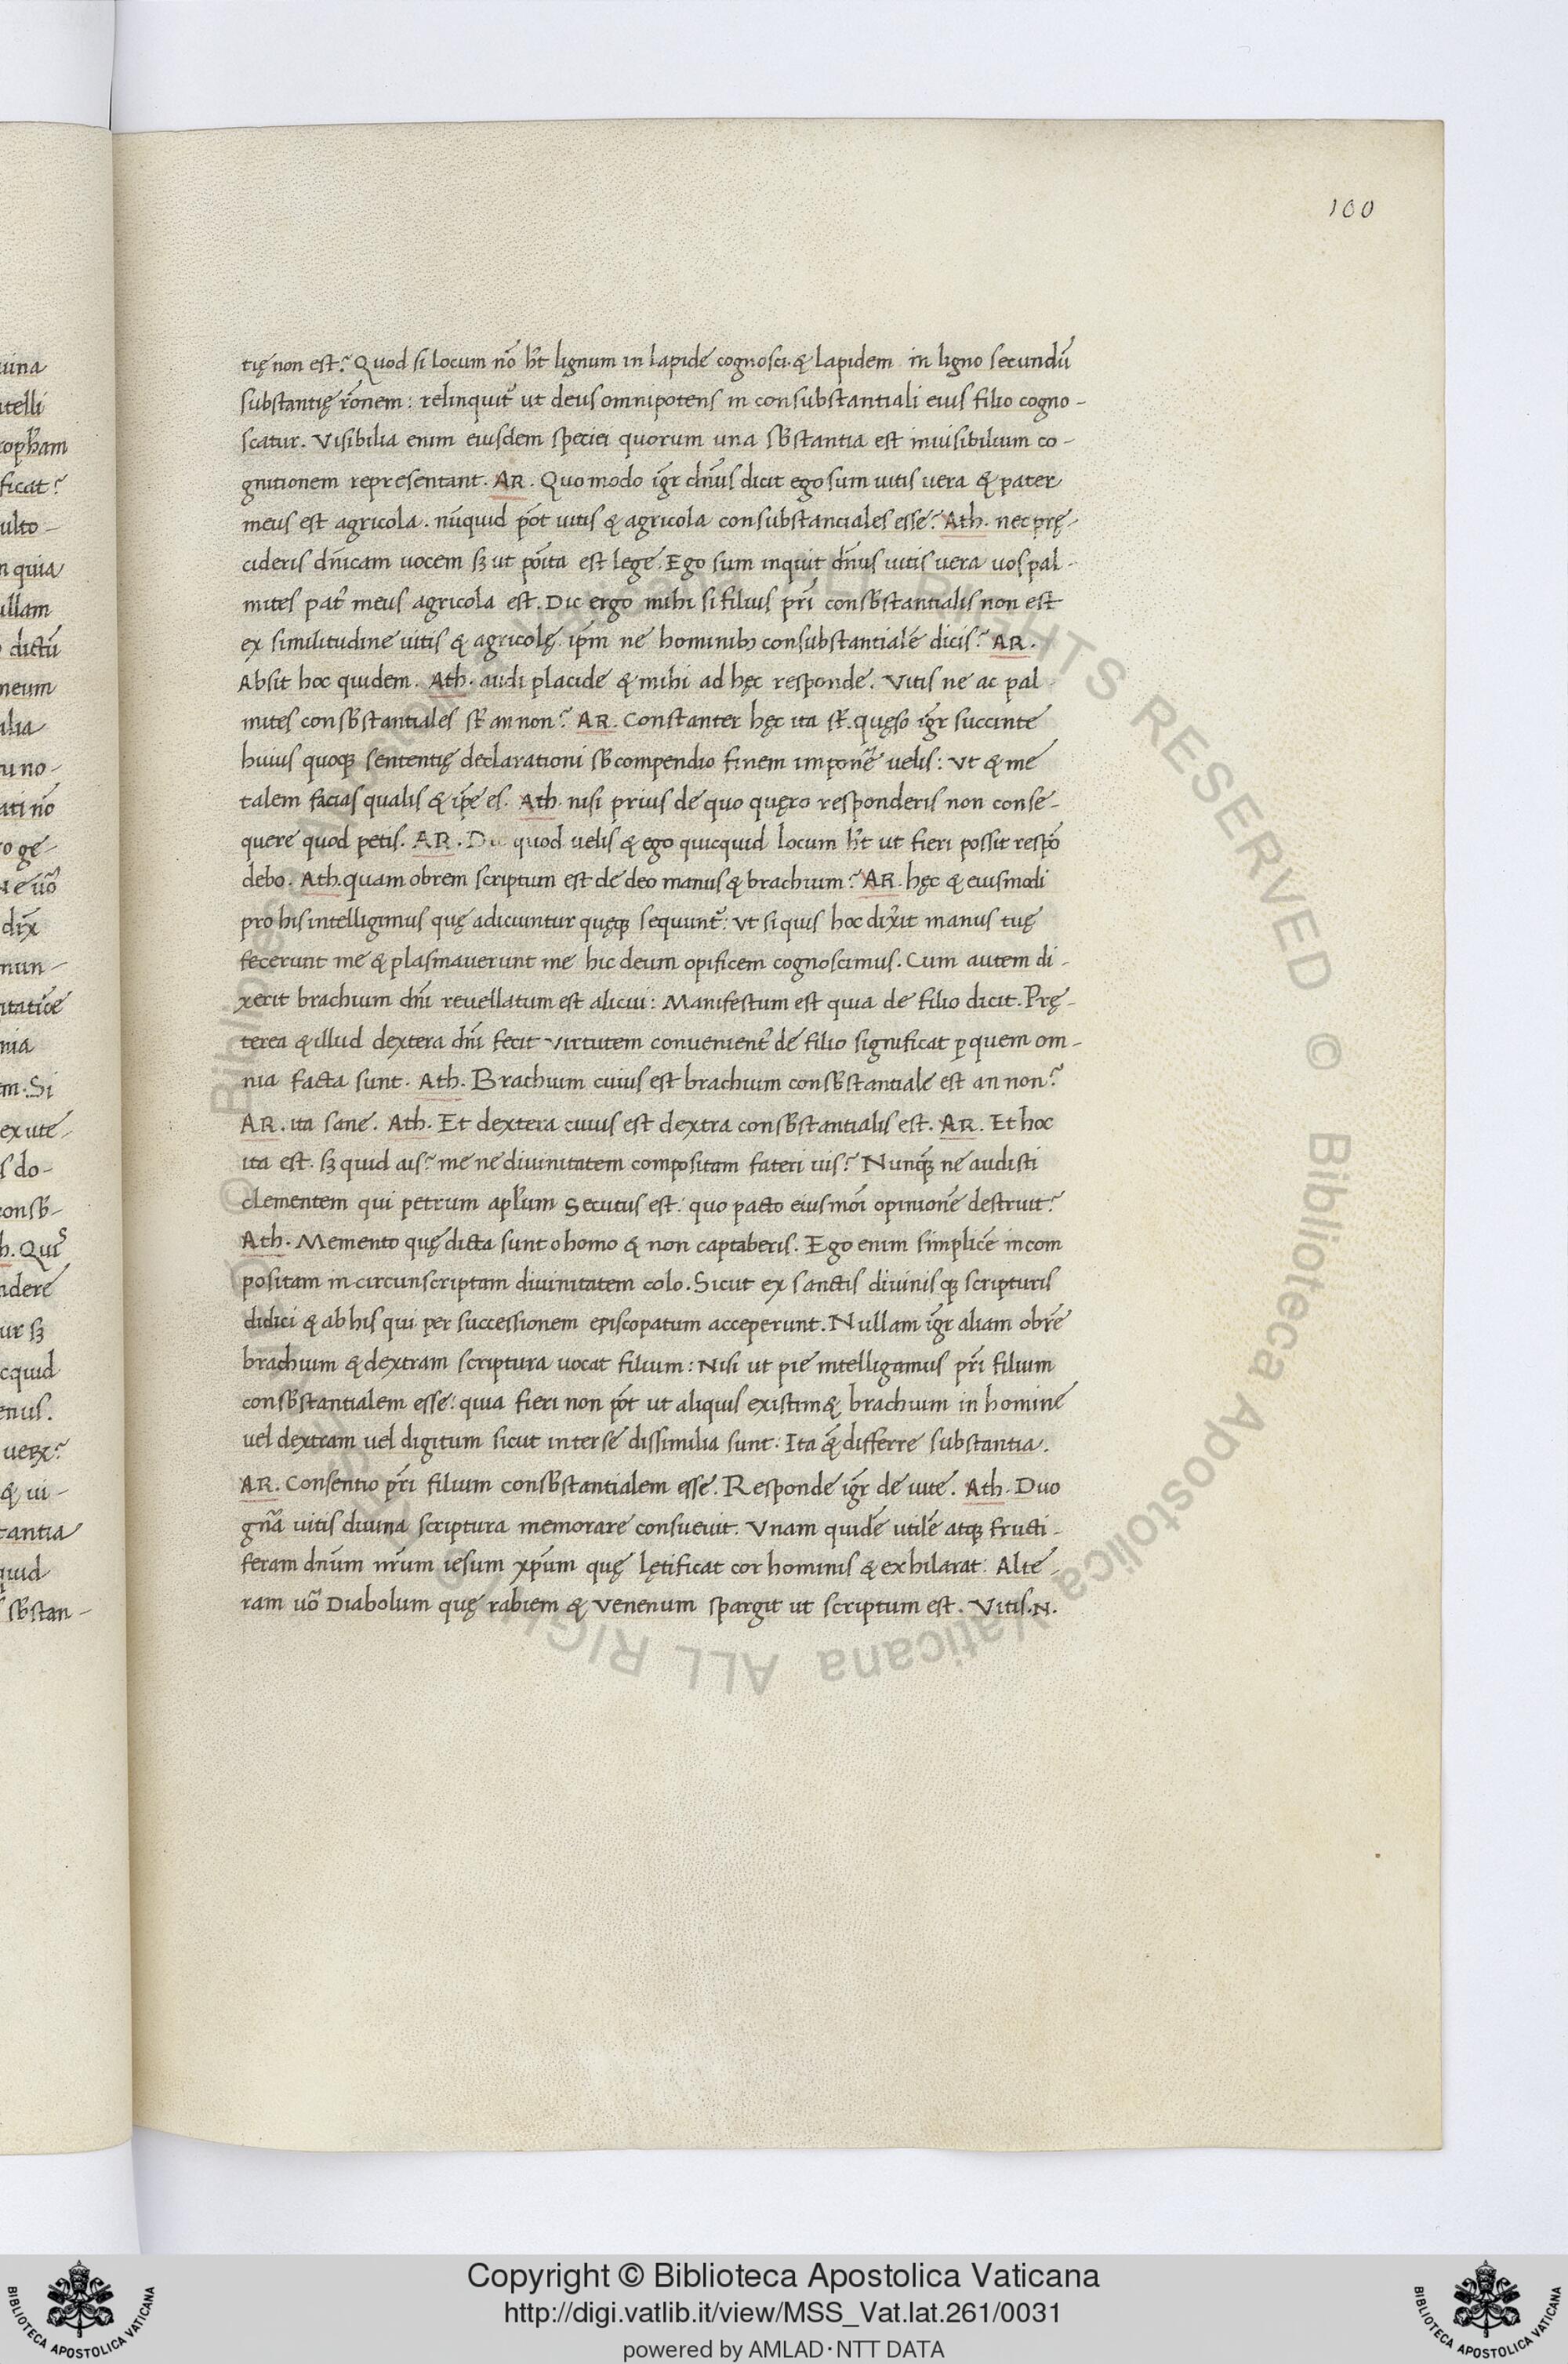 100
tię non est? Quod si locum nō hr̄t lignum in lapide cognosci & lapidem in ligno secundū
substantię rōnem: relinquit̄ ut deus omnipotens in consubstantiali eius filio cogno-
scatur. Visibilia enim eiusdem speciei quorum una sb̄stantia est inuisibilium co-
gnitionem representant. AR. Quo modo igr̄ dn̄us dicit ego sum uitis uera & pater
meus est agricola. nūquid pōt uitis & agricola consubstanciales esse? Ath. nec prę-
cideris dn̄icam uocem sꝫ ut pōita est lege. Ego sum inquit dn̄us uitis uera uos pal-
mites pat̄ meus agricola est. Dic ergo mihi si filius pr̄i consb̄stantialis non est
ex similitudine uitis & agricolę ip̄m ne hominibꝫ consubstantialē dicis? AR.
Absit hoc quidem. Ath. audi placide & mihi ad hęc responde. Vitis ne ac pal
mites consb̄stantiales st̄ an non? AR. Constanter hęc ita st̄. quęso igr̄ succinte
huius quoqꝫ sententię declarationi sb̄compendio finem imponē uelis: Ut & me
talem facias qualis & ip̄e es. Ath. nisi prius de quo quęro responderis non conse-
quere quod petis. AR. Dic quod uelis & ego quicquid locum hr̄t ut fieri possit respō
debo. Ath. quam obrem scriptum est de deo manus & brachium? AR. hęc & eiusmodi
pro his intelligimus quę adiciuntur quęqꝫ sequunt̄: Ut si quis hoc dix̄it manus tuę
fecerunt me & plasmauerunt me hic deum opificem cognoscimus. Cum autem di-
xerit brachium dn̄i reuellatum est alicui: Manifestum est quia de filio dicit. Prę-
terea & illud dextera dn̄i fecit virtutem conuenient̄ de filio significat ꝑ quem om-
nia facta sunt. Ath. Brachium cuius est brachium consb̄stantiale est an non?
AR. ita sane. Ath. Et dextera cuius est dextra consb̄stantialis est. AR. Et hoc
ita est. sꝫ quid ais? me ne diuinitatem compositam fateri uis? Nunqꝫ ne audisti
clementem qui petrum apl̄um secutus est: quo pacto eiusmōi opinionē destruit?
Ath. Memento quę dicta sunt o homo & non captaberis. Ego enim simplicē incom
positam in circunscriptam diuinitatem colo. Sicut ex sanctis diuinisqꝫ scripturis
didici & ab his qui per successionem episcopatum acceperunt. Nullam igr̄ aliam obrē
brachium & dextram scriptura uocat filium: Nisi ut pie intelligamus pr̄i filium
consb̄stantialem esse: quia fieri non pōt ut aliquis existim& brachium in homine
uel dextram uel digitum sicut inter se dissimilia sunt: Ita & differre substantia.
AR. Consentio pr̄i filium consb̄stantialem esse. Responde igr̄ de uite. Ath. Duo
gn̄a uitis diuina scriptura memorare consueuit. Vnam quidē utilē atqꝫ fructi-
feram dn̄um nr̄um iesum xp̄um quę lętificat cor hominis & exhilarat: Alte-
ram uō Diabolum quę rabiem & venenum spargit ut scriptum est. Vitis. N.
Copyright © Biblioteca Apostolica Vaticana
http://digi.vatlib.it/view/MSS_Vat.lat.261/0031
powered by AMLAD·NTT DATA